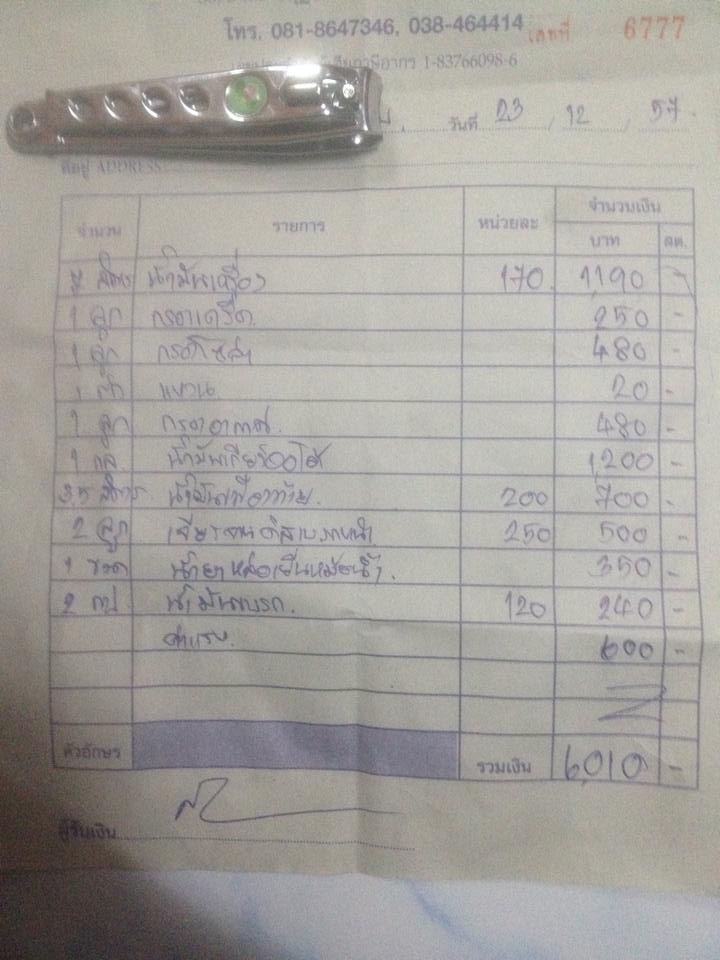 โทร. 081-8647346, 038-464414 เลขที่ 6777
ภาษีอากร 1-83766098-6
วันที่ 23 / 12 / 57
ที่อยู่ ADDRESS
จำนวน รายการ หน่วยละ จำนวนเงิน
บาท สต.
7 ลิตร น้ำมันเครื่อง 170 1,190 -
1 ลูก กรองเครื่อง 250 -
1 ลูก กรองโซล่า 480 -
1 แหวน 20 -
1 ลูก กรองอากาศ 480 -
1 กล น้ำมันเกียร์ออโต้ 1,200 -
3.5 ลิตร น้ำมันเฟืองท้าย 200 700 -
2 ลูก เจียรจานดิสเบรคหน้า 250 500 -
1 ขวด น้ำยาหล่อเย็นหม้อน้ำ 350 -
2 กป น้ำมันเบรก 120 240 -
ค่าแรง 600 -
ตัวอักษร รวมเงิน 6,010 -
ผู้รับเงิน